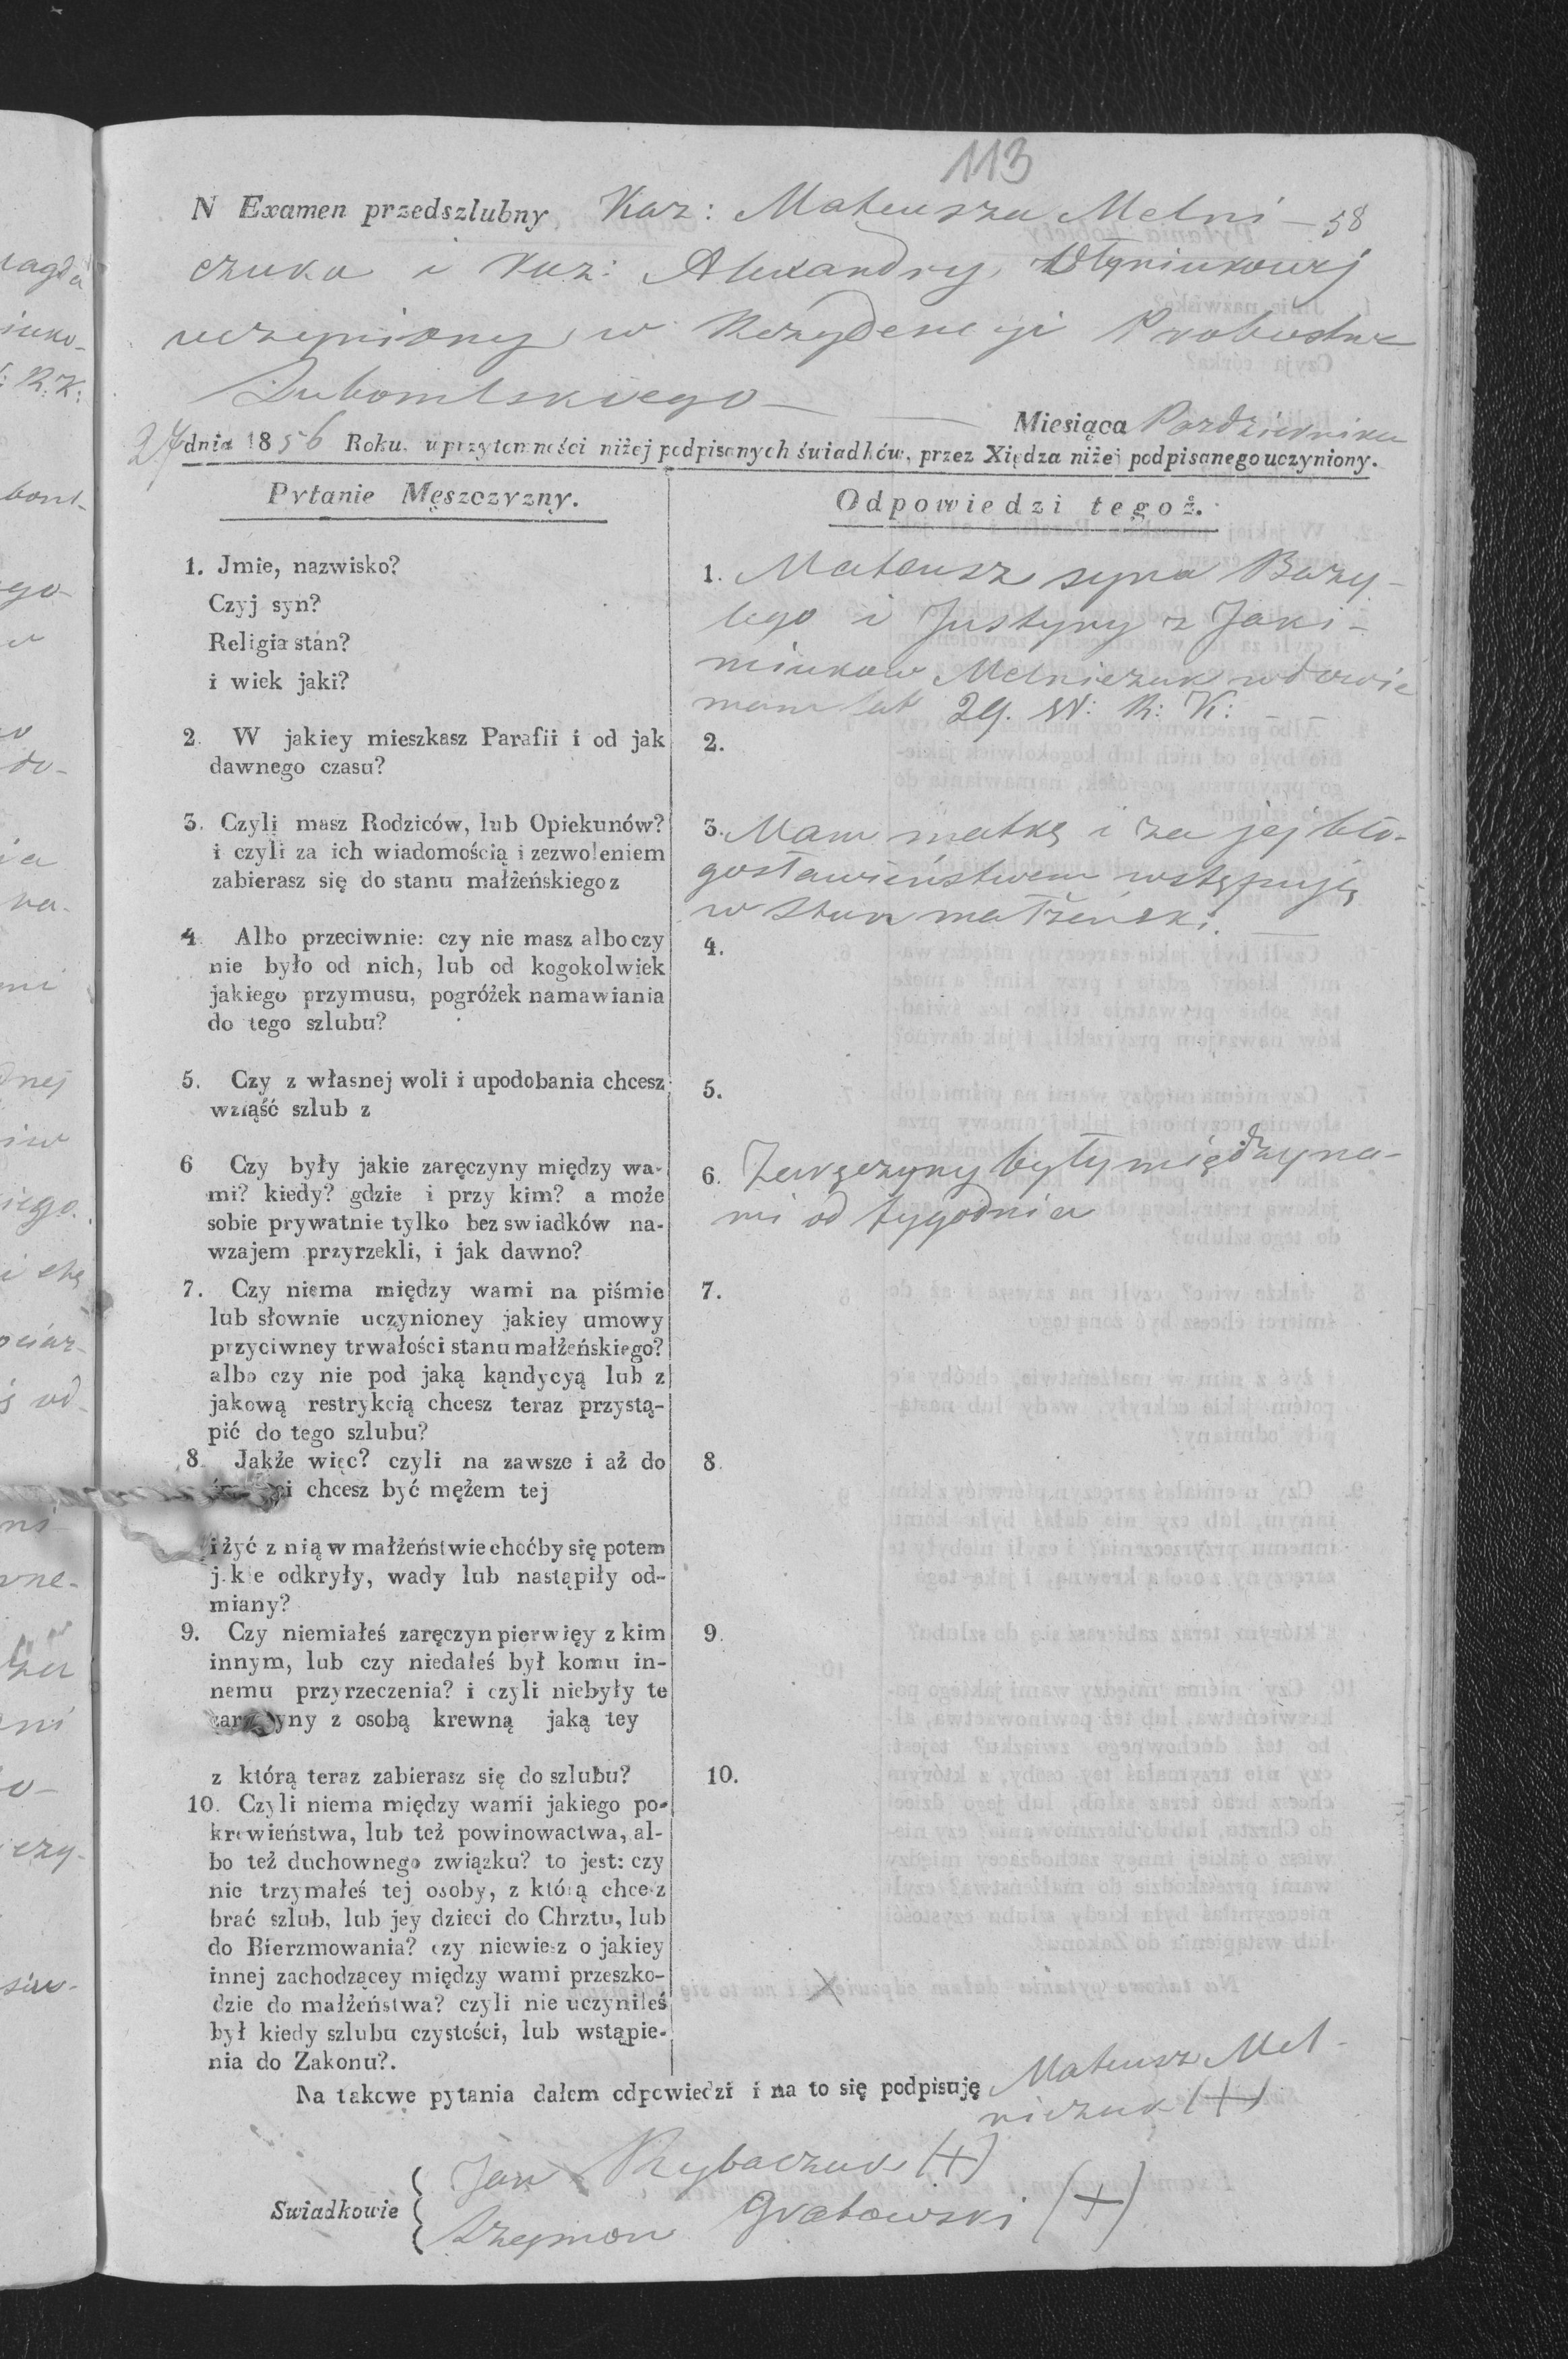 113
N Examen przedszlubny Kaz: Mateusza Melni — 58
czuka i Kaz: Alexandry
uczyniony w Rezydencyi Probostwa
Lubomlskiego —
Miesiąca Pazdziernika
27 dnia 1856 Roku. w przytomności niżej podpisanych świadków, przez Xiędza niżej podpisanego uczyniony.
Pytanie Męszczyzny.
Odpowiedzi tegoż.
1. Jmie, nazwisko?
Czyj syn?
Religia stan?
i wiek jaki?
1. Mateusz syna Bazy-
lego i Justyny z Jaki-
miukow Melniczuk wdowie
mam lat 29. W: R: K: — —
2. W jakiey mieszkasz Parafii i od jak
dawnego czasu?
2.
3. Czyli masz Rodziców, lub Opiekunów?
i czyli za ich wiadomością i zezwoleniem
zabierasz się do stanu małżeńskiego z
3. Mam matkę i za jej bło-
gosławieństwem wstępuję
w stan małżeński. —
4. Albo przeciwnie: czy nie masz albo czy
nie było od nich, lub od kogokolwiek
jakiego przymusu, pogróżek namawiania
do tego szlubu?
4.
5. Czy z własnej woli i upodobania chcesz
wziąść szlub z
5.
6 Czy były jakie zaręczyny między wa-
mi? kiedy? gdzie i przy kim? a może
sobie prywatnie tylko bez swiadków na-
wzajem przyrzekli, i jak dawno?
6. Zaręczyny były między na-
mi od tygodnia
7. Czy niema między wami na piśmie
lub słownie uczynioney jakiey umowy
przyciwney trwałości stanu małżeńskiego?
albo czy nie pod jaką kąndycyą lub z
jakową restrykcią chcesz teraz przystą-
pić do tego szlubu?
7.
8. Jakże więc? czyli na zawsze i aż do
chcesz być mężem tej
i żyć z nią w małżeństwie choćby się potem
jakie odkryły, wady lub nastąpiły od-
miany?
8.
9. Czy niemiałeś zaręczyn pierwięy z kim
innym, lub czy niedałeś był komu in-
nemu przyrzeczenia? i czyli niebyły te
zaręczyny z osobą krewną jaką tey
z którą teraz zabierasz się do szlubu?
9.
10. Czyli niema między wami jakiego po-
krewieństwa, lub też powinowactwa, al-
bo też duchownego związku? to jest: czy
nie trzymałeś tej osoby, z którą chcesz
brać szlub, lub jey dzieci do Chrztu, lub
do Bierzmowania? czy niewiesz o jakiey
innej zachodzacey między wami przeszko-
dzie do małżeństwa? czyli nie uczyniłeś
był kiedy szlubu czystości, lub wstąpie-
nia do Zakonu?.
10.
Na takowe pytania dałem odpowiedzi i na to się podpisuję Mateusz Mel-
niczuk (+)
Swiadkowie
Jan Rybaczuk (+)
Szymon Grabowski (+)